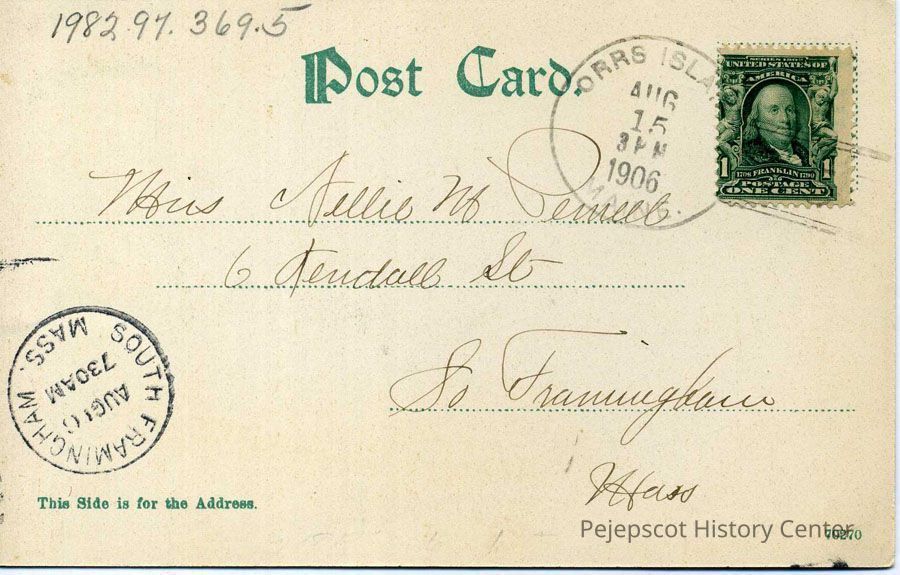 1982.97.369.5
Post Card.
ORRS ISLA
AUG
15
3 PM
1906
SERIES 1902
UNITED STATES OF
AMERICA
1 1706 FRANKLIN 1790 1
POSTAGE
ONE CENT
Miss Nellie M
6 Kendall St
So Framingham
Mass
SOUTH FRAMINGHAM MASS.
AUG 16
730AM
This Side is for the Address.
Pejepscot History Center
70270